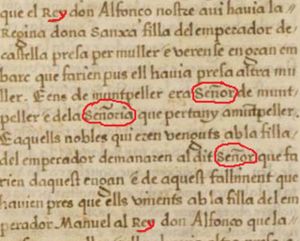 que el Rey don Alfonço nostre aui hauia la
Regina dona Sanxa filla del emperador de
castella presa per muller e veren se en gran em
barc que farien pus ell hauia presa altra mu
ller. E ens de muntpeller era Señor de munt
peller e de la Señoria que pertany a muntpeller.
E aquells nobles qui eren venguts ab la filla
del emperador demanaren al dit Señor que fa
rien daquest engan e de aquest falliment que
hauien pres que ells viments ab la filla del em
perador Manuel al Rey don Alfonço que la